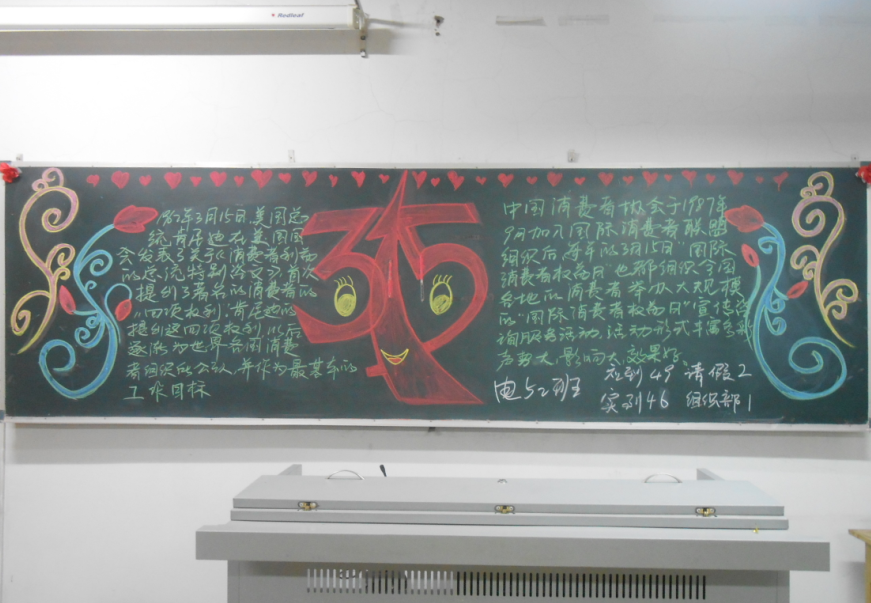 Redleaf
315
1962年3月15日,美国总
统肯尼迪在美国国
会发表了关于《消费者利益
的总统特别咨文》,首次
提到了著名的消费者的
"四次权利,肯尼迪的
提到这四次权利,以后
逐渐为世界各国消费
者组织所公认,并作为最基本的
工作目标
中国消费者协会于1987年
9月加入国际消费者联盟
组织后,每年的3月15日"国际
消费者权益日"也都组织全国
各地的消费者举办大规模
的"国际消费者权益日"宣传咨
询服务活动,活动形式丰富多彩
声势大,影响大,效果好.
应到49 请假2
实到46 组织部1